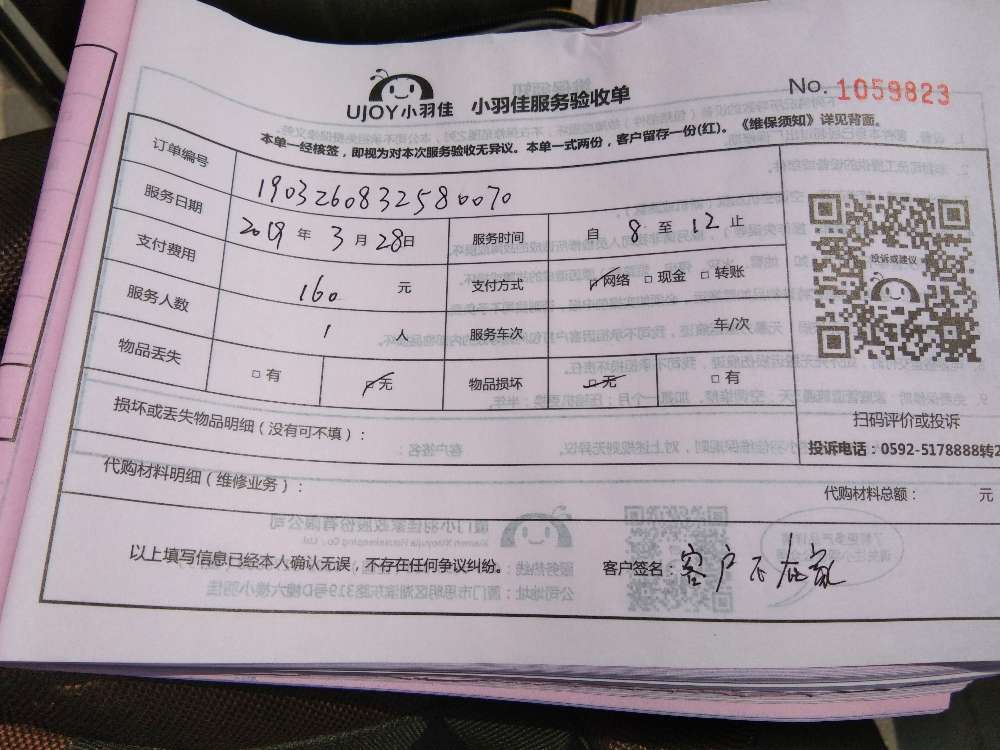 UJOY小羽佳 小羽佳服务验收单
No. 1059823
本单一经核签，即视为对本次服务验收无异议。本单一式两份，客户留存一份(红)。《维保须知》详见背面。
订单编号 1903260832580070
服务日期 2019 年 3 月 28日 服务时间 自 8 至 12 止
支付费用 160 元 支付方式 □网络 □现金 □转账
服务人数 1 人 服务车次 车/次
物品丢失 □有 □无 物品损坏 □无 □有
投诉或建议
扫码评价或投诉
投诉电话：0592-5178888转2
损坏或丢失物品明细（没有可不填）：
代购材料明细（维修业务）： 代购材料总额： 元
以上填写信息已经本人确认无误，不存在任何争议纠纷。 客户签名：客户不在家